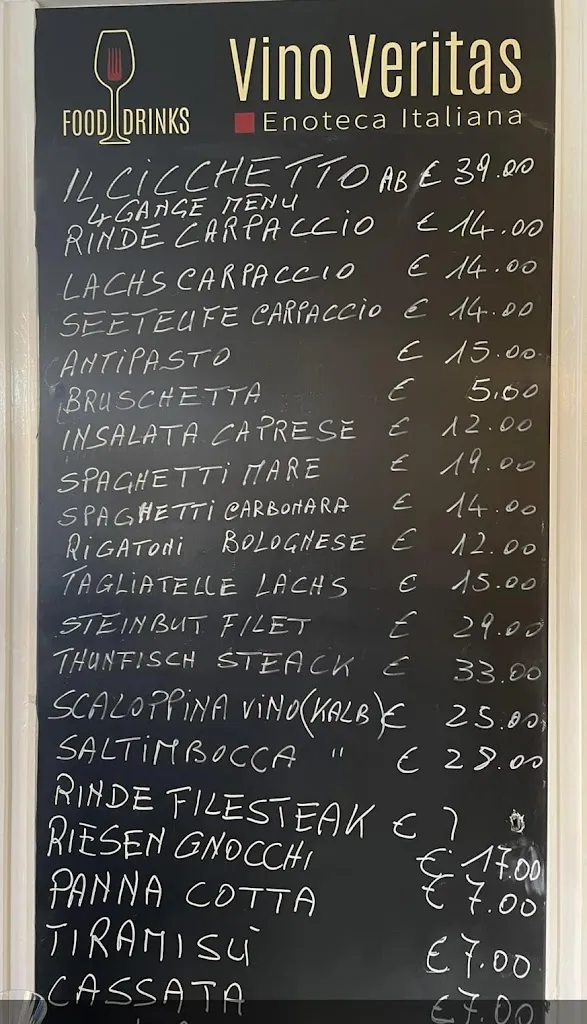 FOOD DRINKS
Vino Veritas
Enoteca Italiana
IL CICCHETTO AB € 39.00
4 GANGE MENU
RINDE CARPACCIO € 14.00
LACHS CARPACCIO € 14.00
SEETEUFE CARPACCIO € 14.00
ANTIPASTO € 15.00
BRUSCHETTA € 5.00
INSALATA CAPRESE € 12.00
SPAGHETTI MARE € 19.00
SPAGHETTI CARBONARA € 14.00
RIGATONI BOLOGNESE € 12.00
TAGLIATELLE LACHS € 15.00
STEINBUT FILET € 29.00
THUNFISCH STEACK € 33.00
SCALOPPINA VINO (KALB) € 25.00
SALTIMBOCCA " € 28.00
RINDE FILESTEAK €
RIESEN GNOCCHI € 17.00
PANNA COTTA € 7.00
TIRAMISÙ € 7.00
CASSATA € 7.00